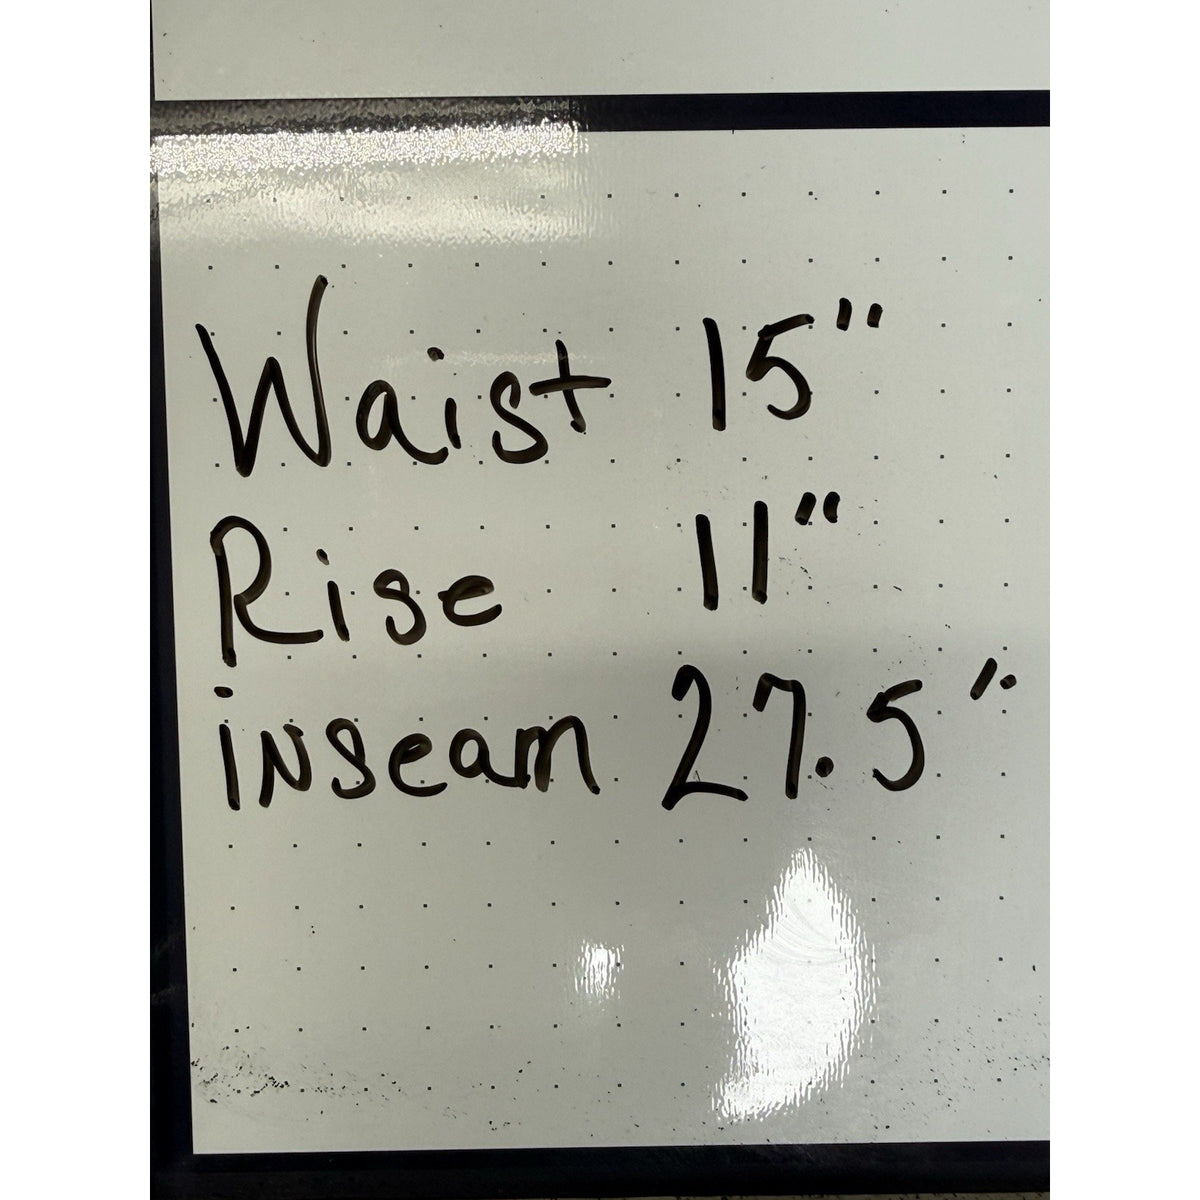 Waist 15"
Rise 11"
inseam 27.5"